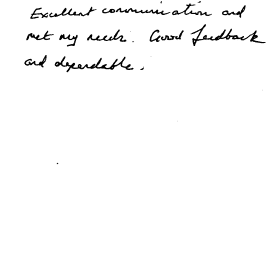 Excellent communication and
met my needs. Good feedback
and dependable.